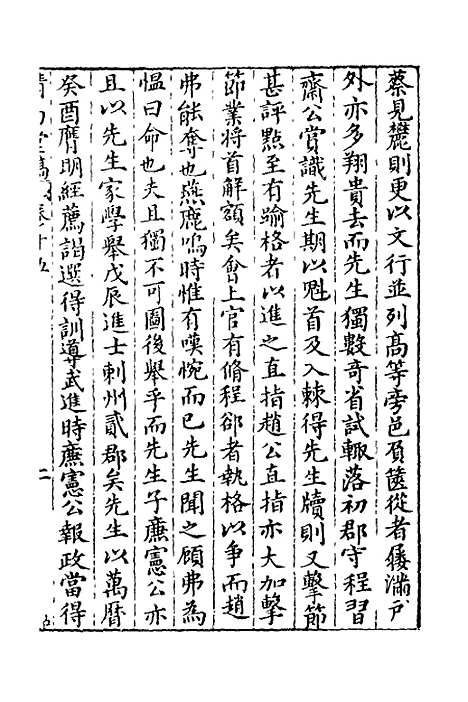 蔡見麓則更以文行並列髙等旁邑負篋從者屨滿戶
外亦多翔貴去而先生獨數奇省試輒落初郡守程習
齋公賞識先生期以魁首及入棘得先生牘則又擊節
甚評點至有踰格者以進之直指趙公直指亦大加擊
節業將首解額矣㑹上官有脩程郤者執格以争而趙
弗能奪也燕鹿鳴時惟有嘆惋而已先生聞之顧弗為
愠曰命也夫且獨不可圖後舉乎而先生子廉憲公亦
且以先生家學舉戊辰進士刺州貳郡矣先生以萬曆
癸酉膺明經薦謁選得訓導武進時廉憲公報政當得
卷十五
二